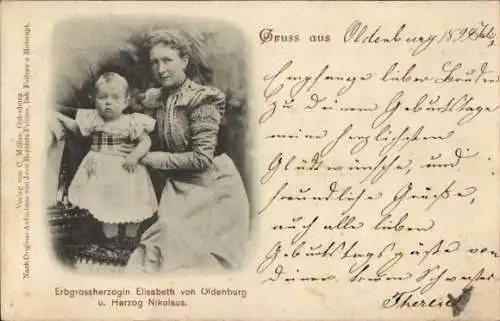 Verlag von C. Müller, Oldenburg
Nach Original-Aufnahme von Jean Baptiste Feilner, Inh. Feilner & Mohaupt.
Gruss aus Oldenburg 1898
Empfange lieber Bruder
zu deinem Geburtstage
meine herzlichsten
Glückwünsche, und
freundliche Grüße,
auch alle lieben
Geburtstagsgäste von
Deiner treuen Schwester
Therese
Erbgrossherzogin Elisabeth von Oldenburg
u. Herzog Nikolaus.